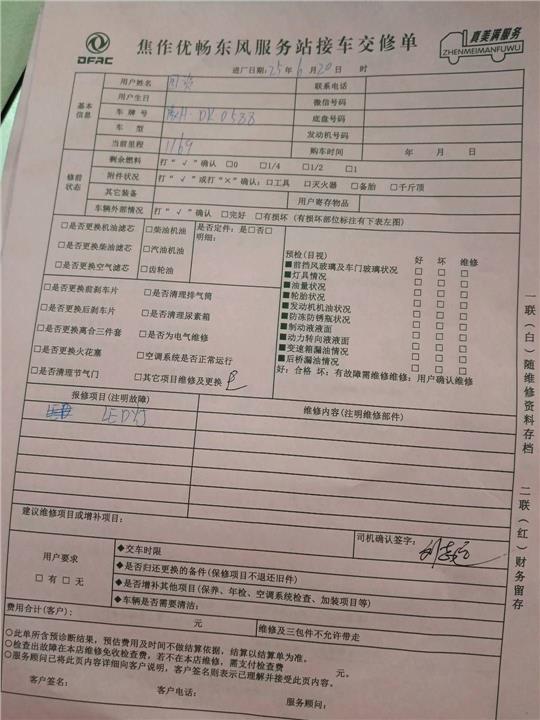 DFAC
焦作优畅东风服务站接车交修单
真美满服务
ZHENMEIMANFUWU
进厂日期：25年6月20日 时
基本信息
用户姓名 联系电话
用户生日 微信号码
车牌号 底盘号码
车型 发动机号码
当前里程 1169 购车时间 年 月 日
修前状态
剩余燃料 打“√”确认 □0 □1/4 □1/2 □1
附件状况 打“√”或打“×”确认：□工具 □灭火器 □备胎 □千斤顶
其它装备 用户寄存物品
车辆外部情况 打“√”确认 □完好 □有损坏（有损坏部位标注有下表左图）
□是否更换机油滤芯 □柴油机油 是否定件：是□否□
明细：
□是否更换柴油滤芯 □汽油机油
□是否更换空气滤芯 □齿轮油
□是否更换前刹车片 □是否清理排气筒
□是否更换后刹车片 □是否清理尿素箱
□是否更换离合三件套 □是否为电气维修
□是否更换火花塞 □空调系统是否正常运行
□是否清理节气门 □其它项目维修及更换
预检（目视） 好 坏 维修
■前挡风玻璃及车门玻璃状况 □ □ □
■灯具情况 □ □ □
■油量状况 □ □ □
■轮胎状况 □ □ □
■发动机机油状况 □ □ □
■防冻防锈瓶状况 □ □ □
■制动液液面 □ □ □
■动力转向液液面 □ □ □
■变速箱漏油情况 □ □ □
■后桥漏油情况 □ □ □
好：合格 坏：有故障需维修维修：用户确认维修
报修项目（注明故障） 维修内容（注明维修部件）
LED灯
建议维修项目或增补项目：
司机确认签字：
用户要求
□有 □无
◆交车时限
◆是否归还更换的备件（保修项目不退还旧件）
◆是否增补其他项目（保养、年检、空调系统检查、加装项目等）
◆车辆是否需要清洁：
费用合计（客户）： 元 维修及三包件不允许带走
○此单所含预诊断结果，预估费用及时间不做结算依据，结算以结算单为准。
○检查出故障在本店维修免收检查费，若不在本店维修，需支付检查费 元。
○服务顾问已将此页内容详细向客户说明，客户签名则表示已理解并接受此页内容。
客户签名： 客户电话： 服务顾问：
一联（白）随维修资料存档
二联（红）财务留存